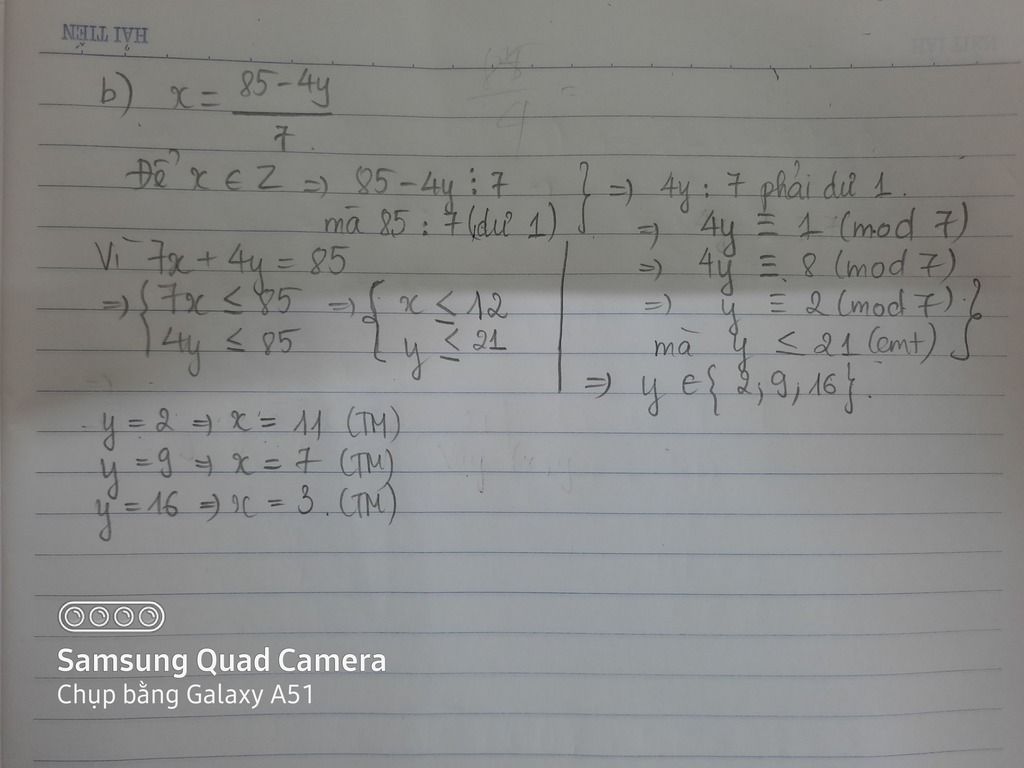 HẢI TIẾN
b) x = (85-4y)/7
Để x ∈ Z => 85-4y ⋮ 7
mà 85 : 7 (dư 1) } => 4y : 7 phải dư 1.
=> 4y ≡ 1 (mod 7)
=> 4y ≡ 8 (mod 7)
=> y ≡ 2 (mod 7).
mà y ≤ 21 (cmt) }
=> y ∈ { 2, 9, 16 }.
Vì 7x + 4y = 85
=> { 7x ≤ 85 => { x ≤ 12
4y ≤ 85 y ≤ 21
y = 2 => x = 11 (TM)
y = 9 => x = 7 (TM)
y = 16 => x = 3. (TM)
Samsung Quad Camera
Chụp bằng Galaxy A51